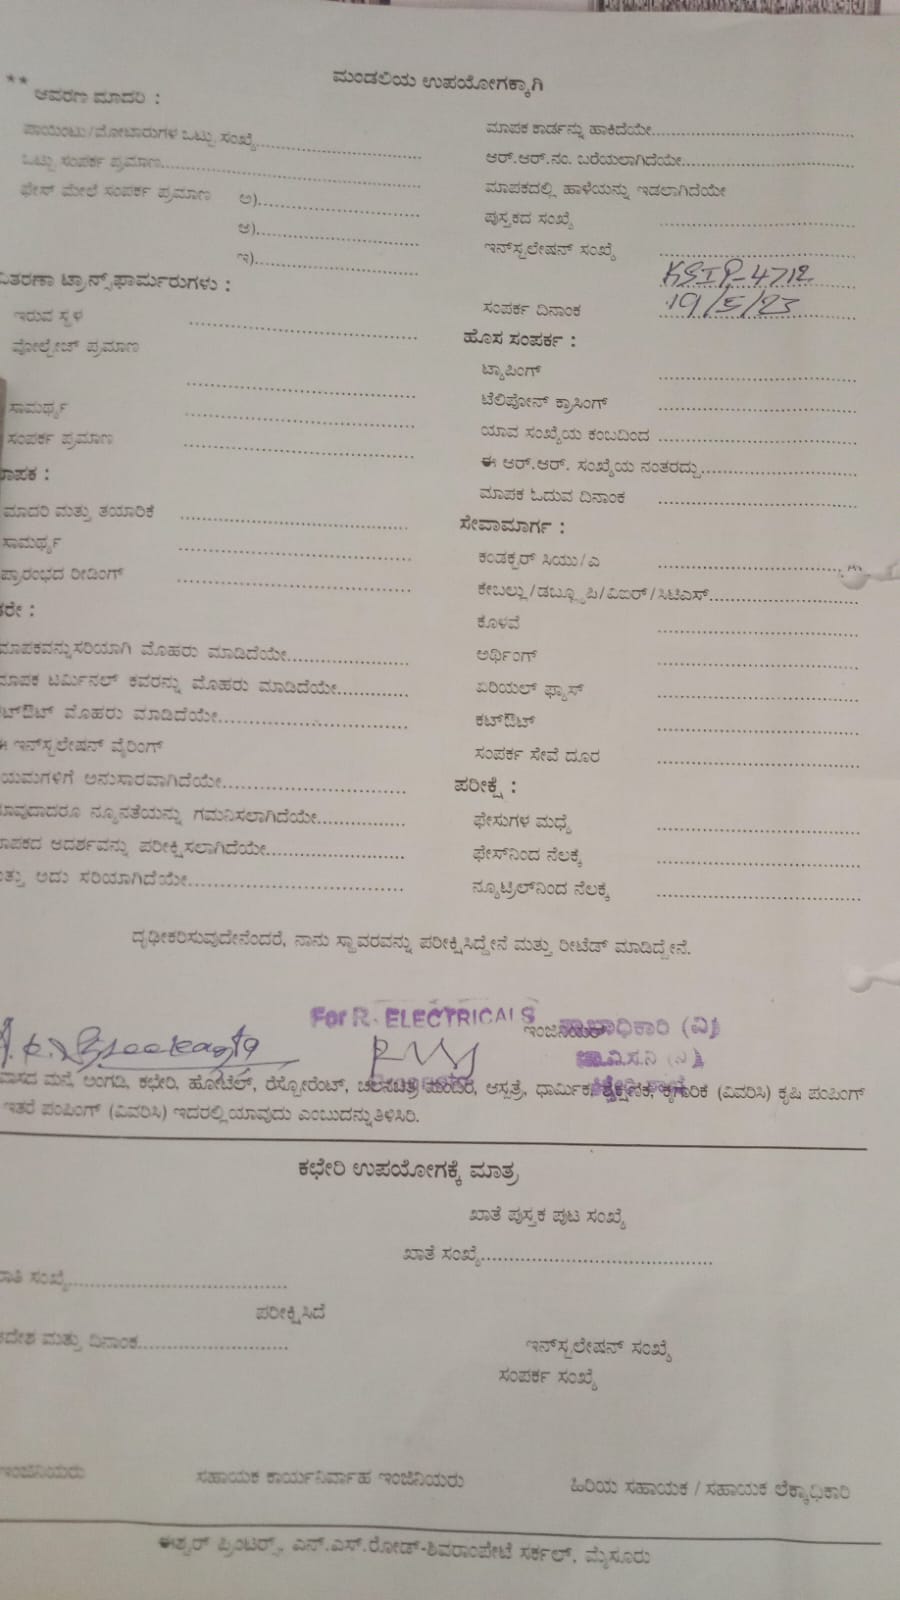 ** ಮಂಡಲಿಯ ಉಪಯೋಗಕ್ಕಾಗಿ
ಆವರಣ ಮಾದರಿ :
ಪಾಯಿಂಟು/ಮೋಟಾರುಗಳ ಒಟ್ಟು ಸಂಖ್ಯೆ
ಒಟ್ಟು ಸಂಪರ್ಕ ಪ್ರಮಾಣ
ಫೇಸ್ ಮೇಲೆ ಸಂಪರ್ಕ ಪ್ರಮಾಣ ಅ)
ಆ)
ಇ)
ವಿತರಣಾ ಟ್ರಾನ್ಸ್‌ಫಾರ್ಮರುಗಳು :
ಇರುವ ಸ್ಥಳ
ವೋಲ್ಟೇಜ್ ಪ್ರಮಾಣ
ಸಾಮರ್ಥ್ಯ
ಸಂಪರ್ಕ ಪ್ರಮಾಣ
ಾಪಕ :
ಮಾದರಿ ಮತ್ತು ತಯಾರಿಕೆ
ಸಾಮರ್ಥ್ಯ
ಪ್ರಾರಂಭದ ರೀಡಿಂಗ್
ತರೇ :
ಮಾಪಕವನ್ನು ಸರಿಯಾಗಿ ಮೊಹರು ಮಾಡಿದೆಯೇ
ಮಾಪಕ ಟರ್ಮಿನಲ್ ಕವರನ್ನು ಮೊಹರು ಮಾಡಿದೆಯೇ
ಕಟ್‌ಔಟ್ ಮೊಹರು ಮಾಡಿದೆಯೇ
ಈ ಇನ್‌ಸ್ಟಲೇಷನ್ ವೈರಿಂಗ್
ಯಮಗಳಿಗೆ ಅನುಸಾರವಾಗಿದೆಯೇ
ಯಾವುದಾದರೂ ನ್ಯೂನತೆಯನ್ನು ಗಮನಿಸಲಾಗಿದೆಯೇ
ಮಾಪಕದ ಆದರ್ಶವನ್ನು ಪರೀಕ್ಷಿಸಲಾಗಿದೆಯೇ
ಮತ್ತು ಅದು ಸರಿಯಾಗಿದೆಯೇ
ಮಾಪಕ ಕಾರ್ಡನ್ನು ಹಾಕಿದೆಯೇ
ಆರ್.ಆರ್.ನಂ. ಬರೆಯಲಾಗಿದೆಯೇ
ಮಾಪಕದಲ್ಲಿ ಹಾಳೆಯನ್ನು ಇಡಲಾಗಿದೆಯೇ
ಪುಸ್ತಕದ ಸಂಖ್ಯೆ
ಇನ್‌ಸ್ಟಲೇಷನ್ ಸಂಖ್ಯೆ
KSIP-4712
ಸಂಪರ್ಕ ದಿನಾಂಕ 19/5/23
ಹೊಸ ಸಂಪರ್ಕ :
ಟ್ಯಾಪಿಂಗ್
ಟೆಲಿಫೋನ್ ಕ್ರಾಸಿಂಗ್
ಯಾವ ಸಂಖ್ಯೆಯ ಕಂಬದಿಂದ
ಈ ಆರ್.ಆರ್. ಸಂಖ್ಯೆಯ ನಂತರದ್ದು
ಮಾಪಕ ಓದುವ ದಿನಾಂಕ
ಸೇವಾಮಾರ್ಗ :
ಕಂಡಕ್ಟರ್ ಸಿಯು/ಎ
ಕೇಬಲ್ಲು/ಡಬ್ಲ್ಯೂಪಿ/ವಿಐರ್/ಸಿಟಿಎಸ್
ಕೊಳವೆ
ಅರ್ಥಿಂಗ್
ಏರಿಯಲ್ ಫ್ಯೂಸ್
ಕಟ್‌ಔಟ್
ಸಂಪರ್ಕ ಸೇವೆ ದೂರ
ಪರೀಕ್ಷೆ :
ಫೇಸುಗಳ ಮಧ್ಯೆ
ಫೇಸ್‌ನಿಂದ ನೆಲಕ್ಕೆ
ನ್ಯೂಟ್ರಿಲ್‌ನಿಂದ ನೆಲಕ್ಕೆ
ದೃಢೀಕರಿಸುವುದೇನೆಂದರೆ, ನಾನು ಸ್ಥಾವರವನ್ನು ಪರೀಕ್ಷಿಸಿದ್ದೇನೆ ಮತ್ತು ರೀಟೆಡ್ ಮಾಡಿದ್ದೇನೆ.
For R. ELECTRICALS
ಇಂಜಿನಿಯರ್
ವಾಸದ ಮನೆ, ಅಂಗಡಿ, ಕಛೇರಿ, ಹೋಟೆಲ್, ರೆಸ್ಟೋರೆಂಟ್, ಚಲನಚಿತ್ರ ಮಂದಿರ, ಆಸ್ಪತ್ರೆ, ಧಾರ್ಮಿಕ, ಶೈಕ್ಷಣಿಕ, ಕೈಗಾರಿಕೆ (ವಿವರಿಸಿ) ಕೃಷಿ ಪಂಪಿಂಗ್
ಇತರೆ ಪಂಪಿಂಗ್ (ವಿವರಿಸಿ) ಇದರಲ್ಲಿ ಯಾವುದು ಎಂಬುದನ್ನು ತಿಳಿಸಿರಿ.
ಕಛೇರಿ ಉಪಯೋಗಕ್ಕೆ ಮಾತ್ರ
ಖಾತೆ ಪುಸ್ತಕ ಪುಟ ಸಂಖ್ಯೆ
ಖಾತೆ ಸಂಖ್ಯೆ
ಸಂಖ್ಯೆ
ಪರೀಕ್ಷಿಸಿದೆ
ಆದೇಶ ಮತ್ತು ದಿನಾಂಕ
ಇನ್‌ಸ್ಟಲೇಷನ್ ಸಂಖ್ಯೆ
ಸಂಪರ್ಕ ಸಂಖ್ಯೆ
ಇಂಜಿನಿಯರು ಸಹಾಯಕ ಕಾರ್ಯನಿರ್ವಾಹ ಇಂಜಿನಿಯರು ಹಿರಿಯ ಸಹಾಯಕ / ಸಹಾಯಕ ಲೆಕ್ಕಾಧಿಕಾರಿ
ಈಶ್ವರ್ ಪ್ರಿಂಟರ್ಸ್, ಎನ್.ಎಸ್.ರೋಡ್-ಶಿವರಾಂಪೇಟೆ ಸರ್ಕಲ್, ಮೈಸೂರು